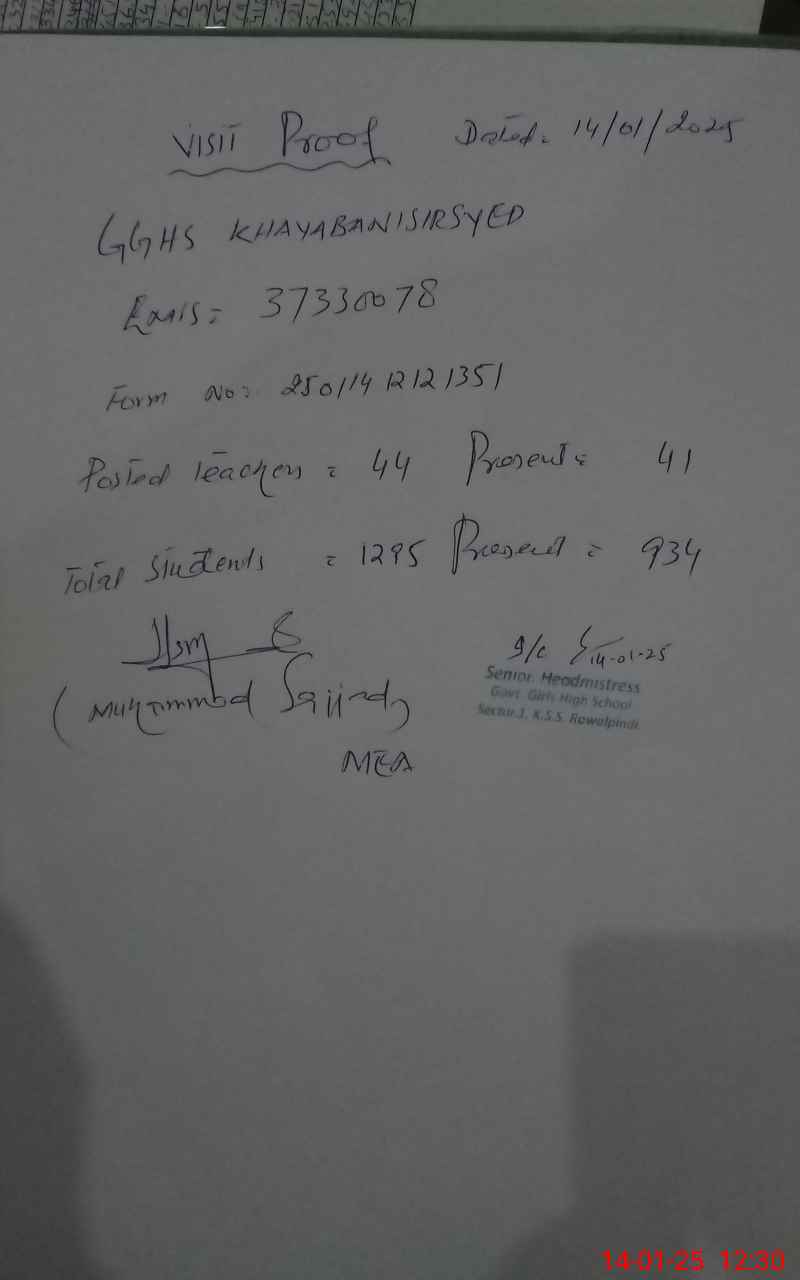 VISIT Proof Dated. 14/01/2025
GGHS KHAYABANISIRSYED
Emis = 37330078
Form No: 25011412121351
Posted teachers = 44 Present = 41
Total Students = 1295 Present = 934
(Muhammad Sajjad)
MEA
I/C 14-01-25
Senior. Headmistress
Govt. Girls High School
Sector.1, K.S.S. Rawalpindi
14-01-25 12:30